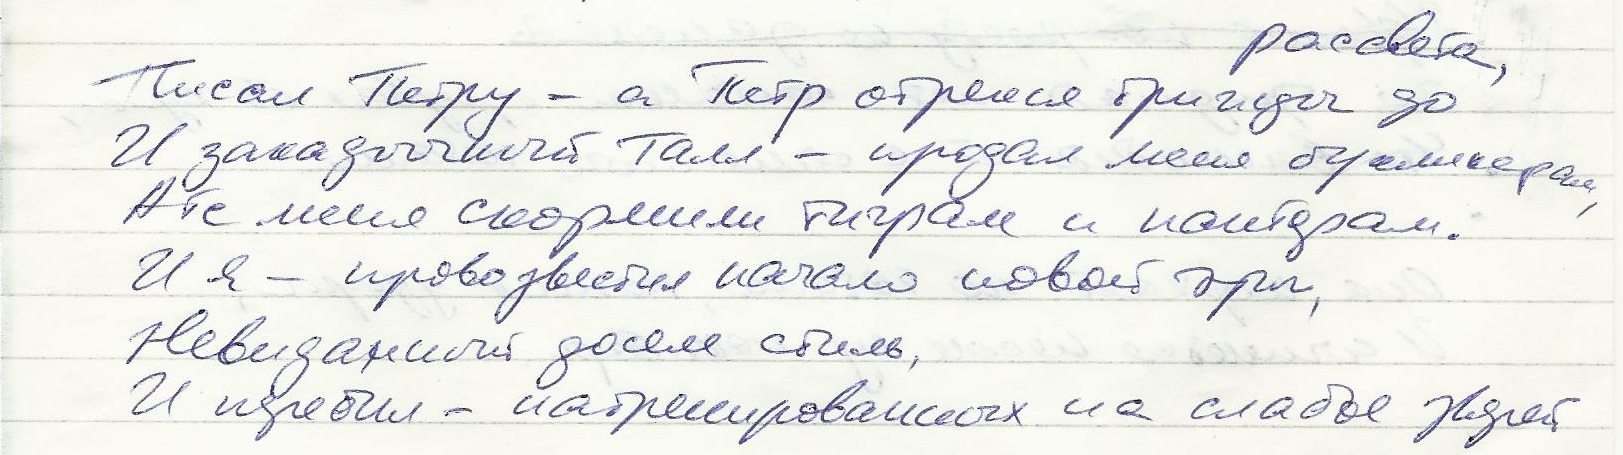 Писал Петру – а Петр отрекся трижды до
рассвета,
И закадычный – продал меня букмекерам,
А те меня скормили тиграм и пантерам.
И я – провозвестил начало новой эры,
Невиданный доселе стиль,
И – натренированных на слабое